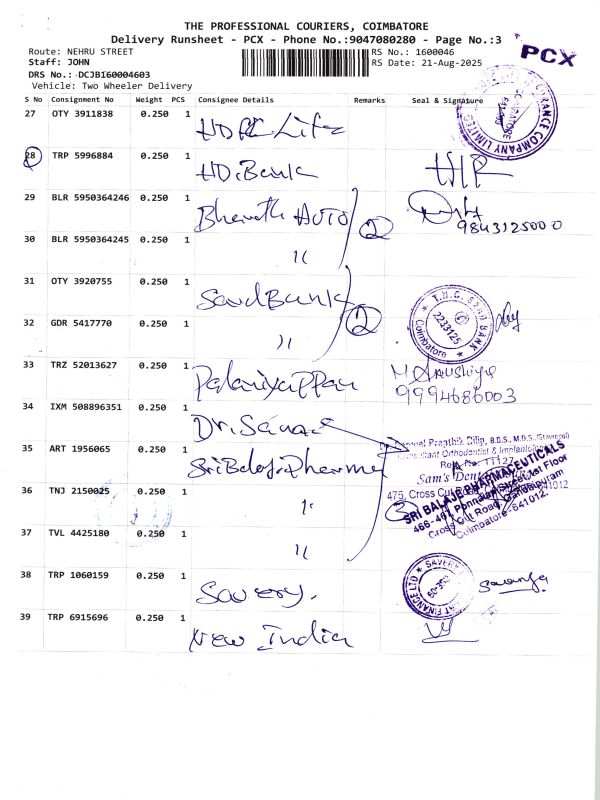 THE PROFESSIONAL COURIERS, COIMBATORE
Delivery Runsheet - PCX - Phone No.:9047080280 - Page No.:3
Route: NEHRU STREET
RS No.: 1600046
PCX
Staff: JOHN
RS Date: 21-Aug-2025
DRS No.:-DCJB160004603
Vehicle: Two Wheeler Delivery
S No Consignment No Weight PCS Consignee Details Remarks Seal & Signature
27 OTY 3911838 0.250 1 HDFC Life
COIMBATORE
641
COMPANY LIMITED
28 TRP 5996884 0.250 1 HD.Bank
29 BLR 5950364246 0.250 1 Bharath AUTO
2
9843125000
30 BLR 5950364245 0.250 1 "
31 OTY 3920755 0.250 1 Saud Bank
2
T.N.G. BANK
2233125
Coimbatore
32 GDR 5417770 0.250 1 "
33 TRZ 52013627 0.250 1 Palaniyappan
9994686003
34 IXM 508896351 0.250 1 Dr.
35 ART 1956065 0.250 1 Sri Balaji Pharma
Prapthik Dilip, B.D.S., M.D.S.
Consultant Orthodontist & Implantologist
Sam's Dental
475, Cross Cut
641012
SRI BALAJI PHARMACEUTICALS
466-467, Ponnaiyan Street 1st Floor
Cross Cut Road, Gandhipuram
Coimbatore-641012.
36 TNJ 2150025 0.250 1 "
3
37 TVL 4425180 0.250 1 "
38 TRP 1060159 0.250 1 Savery.
SAVERY
FINANCE LTD
39 TRP 6915696 0.250 1 New India